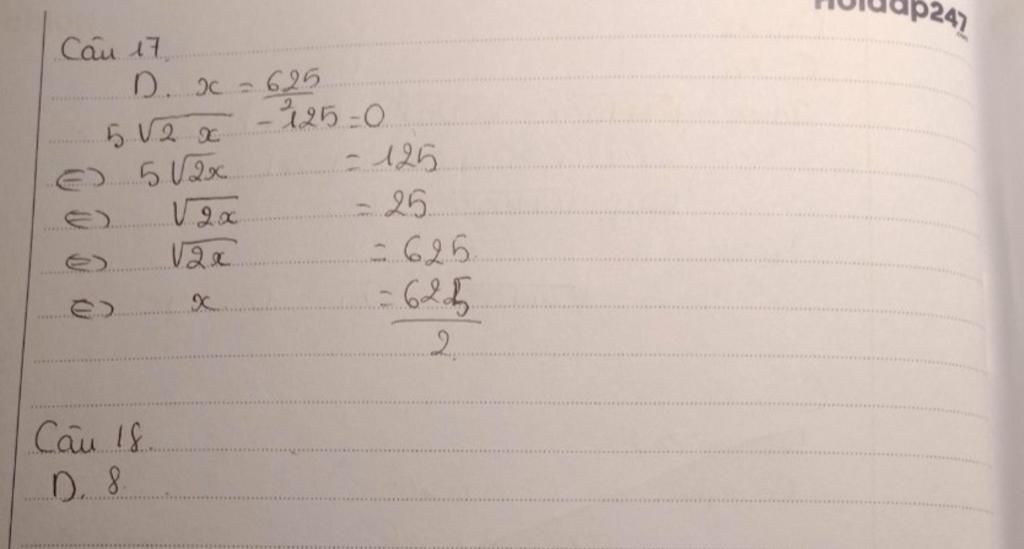 Hoidap247
.com
Câu 17.
D. x = 625/2
5√2x - 125 = 0
<=> 5√2x = 125
<=> √2x = 25
<=> √2x = 625
<=> x = 625/2
Câu 18.
D. 8